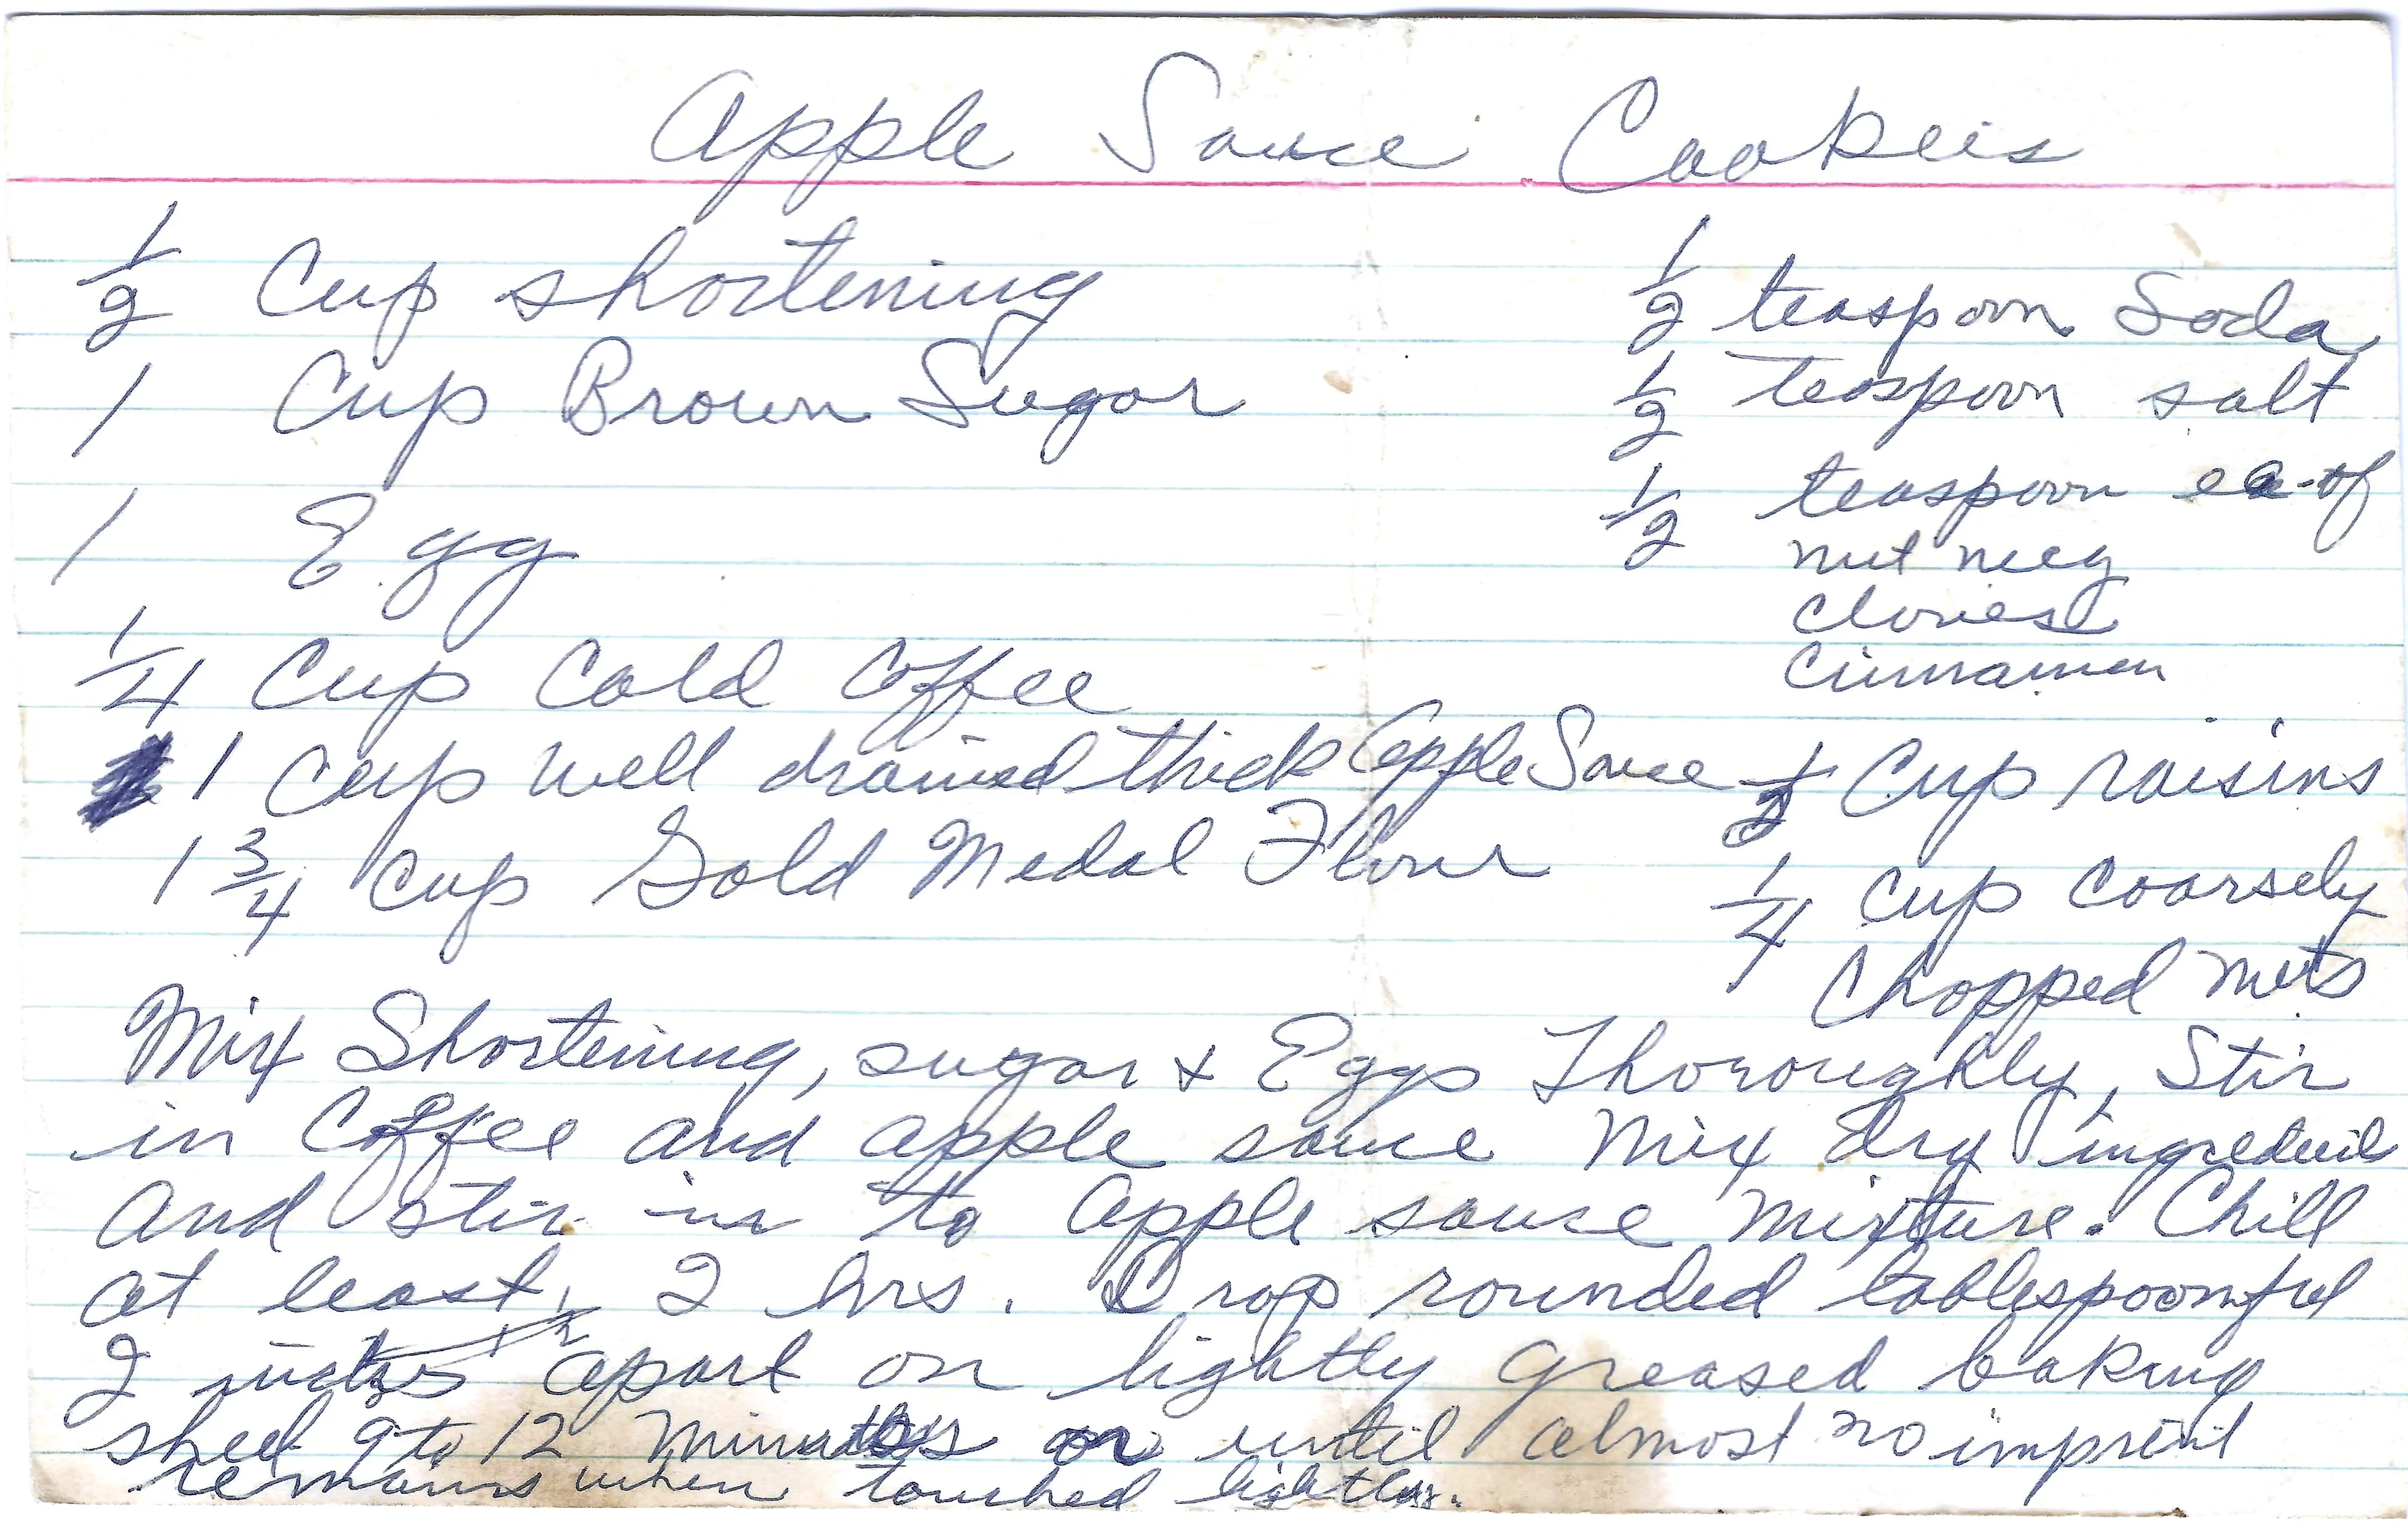 Apple Sauce Cookeis
1/2 Cup shortening
1 Cup Brown Sugar
1 Egg
1/4 Cup Cold Coffee
1 Cup well drained thick Apple Sauce
1 3/4 Cup Gold Medal Flour
1/2 teaspoon Soda
1/2 teaspoon salt
1/2 teaspoon ea-of
nut meg
Cloves
Cinnamon
1/2 Cup raisins
1/4 Cup Coarsely
Chopped nuts
Mix Shortening, sugar + Eggs Thoroughly, Stir
in Coffee and apple sauce Mix dry
and stir in to apple sauce mixture. Chill
at least 2 hrs. Drop rounded tablespoonful
2 apart on lightly greased baking
sheet 9 to 12 Minutes or until almost no imprint
remains when touched lightly.